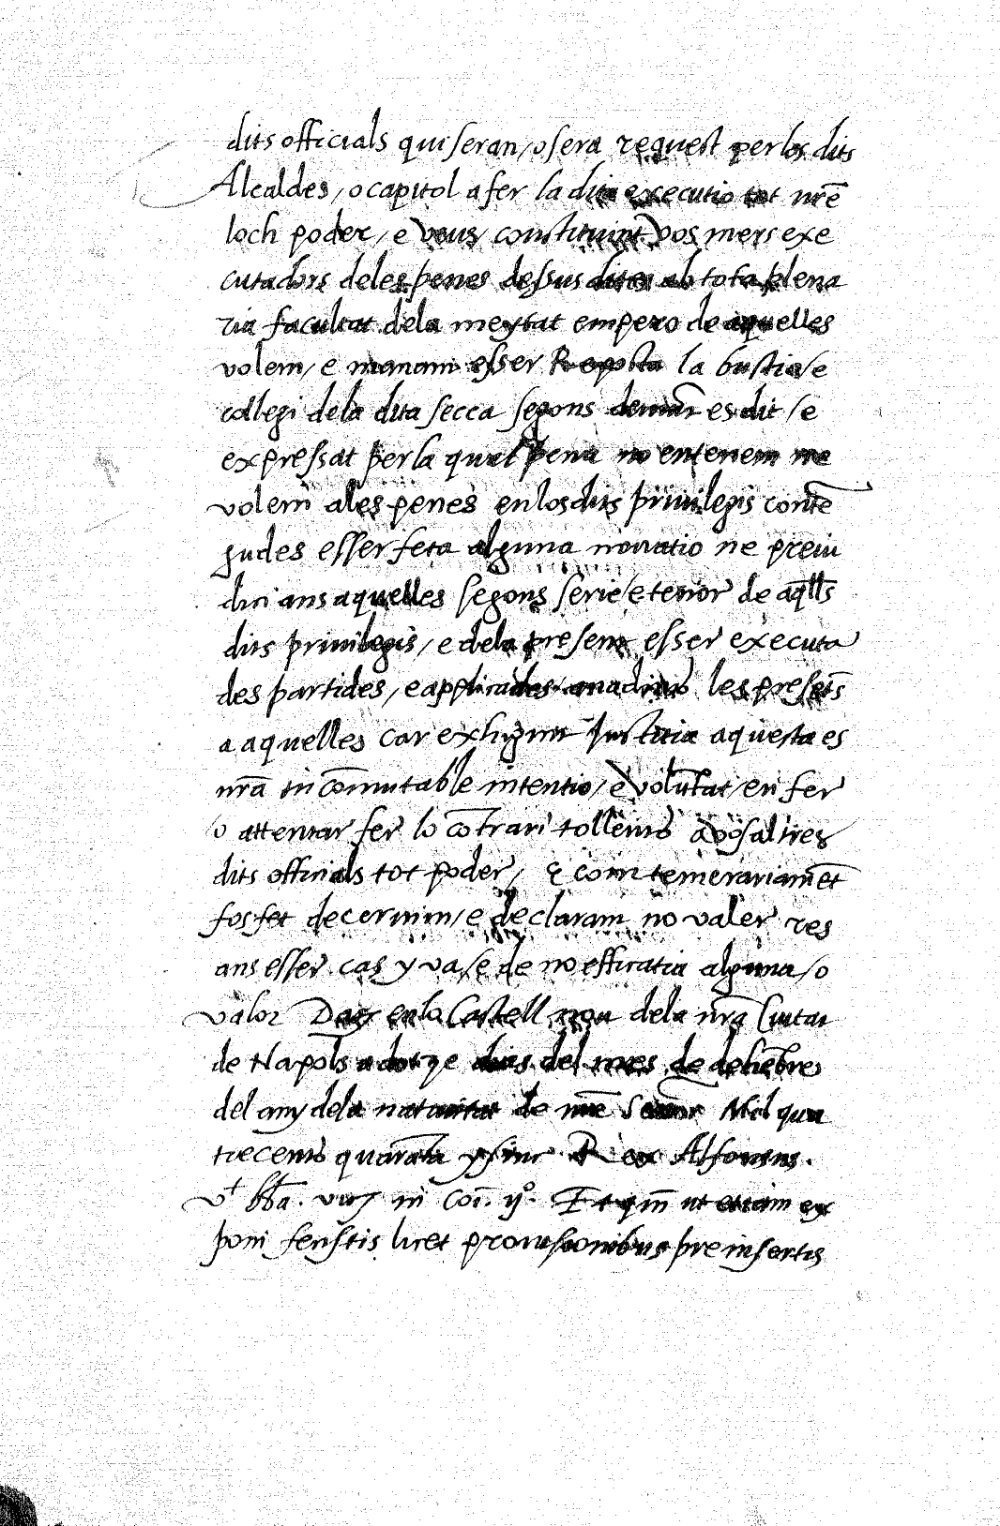 dits officials qui seran / o sera request per los dits
Alcaldes / o capitol a fer la dita executio tot nr̃e
loch poder / e veus constituint vos mers exe
cutadors deles penes dessus dites ab tota plena
ria facultat dela meytat empero de aquelles
volem / e manam esser Reposta la bustia / e
collegi dela dita secca segons demũt es dit / e
expressat per la qual pena no entenem ne
volem ales penes en los dits priuilegis contẽ
gudes esser feta alguna nouatio ne preiu
dici ans aquelles segons serie / e tenor de aq̃lls
dits priuilegis / e dela present esser executa
des partides / e applicades anadints les presẽts
a aquelles car exhigint Justitia aquesta es
nr̃a incõmutable intentio / e volũtat / en fer
o attentar fer lo cõtrari tollents a vosaltres
dits officials tot poder / E com temerariamẽt
fos fet decernim / e declaram no valer res
ans esser cas y va / e de no efficatia alguna / o
valor Dat en lo Castell nou dela nr̃a Ciutat
de Napols a dotze dies del mes de dehẽbre
del any dela natiuitat de nr̃e Senõr Mil qua
trecents quarãta y sinc Rex Alfonsus.
in Coĩ. ij°. Et qm̃ ut etiam ex
poni fecistis licet prouisionibus preinsertis